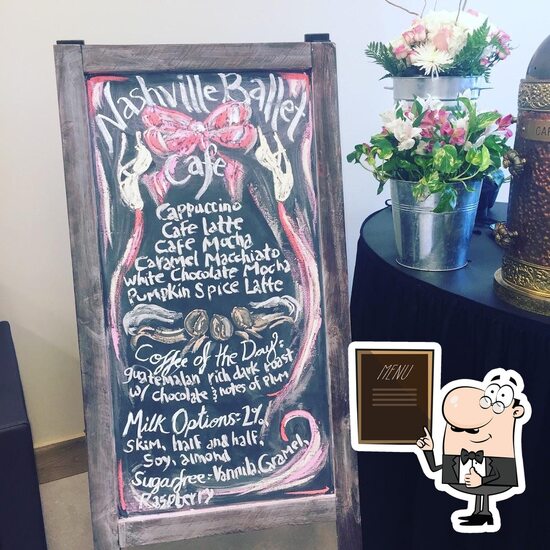 Nashville Ballet
Cafe
Cappuccino
Cafe latte
Cafe Mocha
Caramel Macchiato
White Chocolate Mocha
Pumpkin Spice Latte
Coffee of the Day:
guatemalan rich dark roast
w/ chocolate & notes of plum
Milk Options: 2%,
Skim, half and half,
Soy, almond
Sugarfree: Vannila, Caramel,
Raspberry
MENU